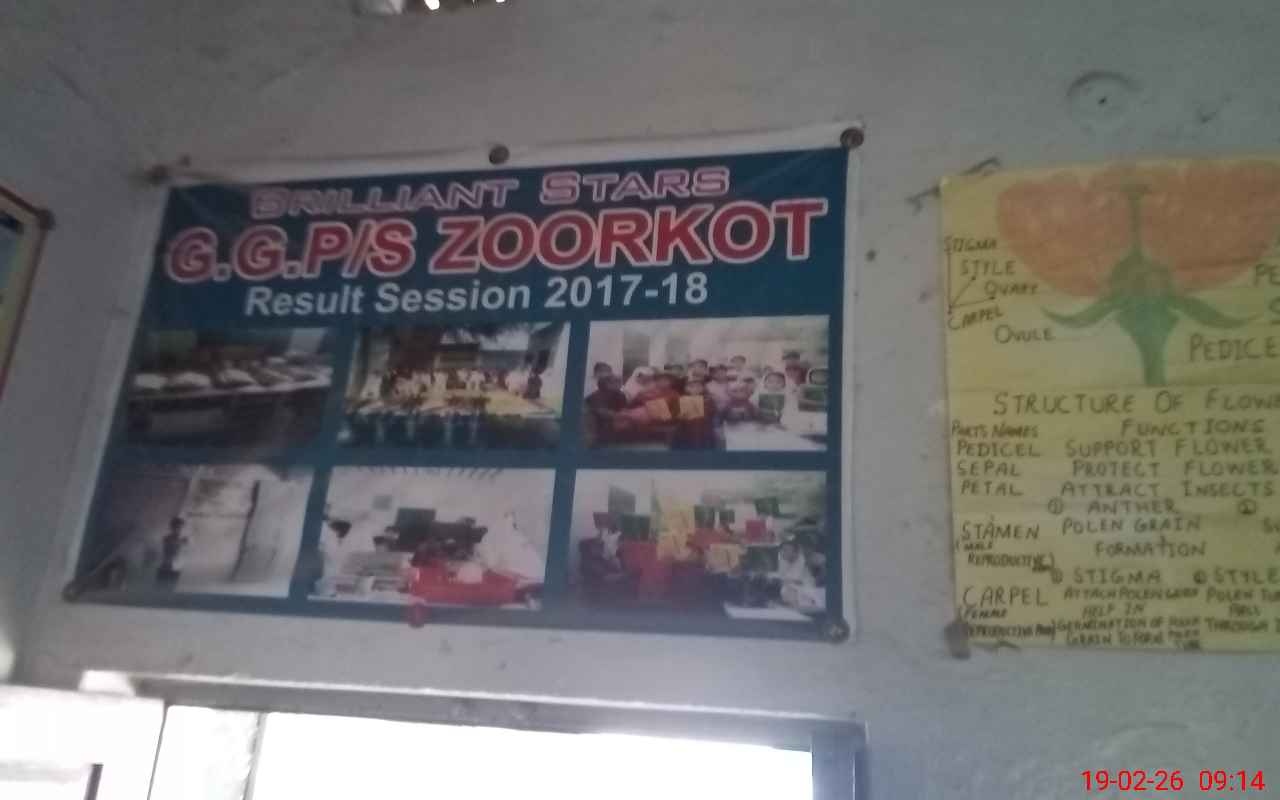 BRILLIANT STARS
G.G.P/S ZOORKOT
Result Session 2017-18
STIGMA
STYLE
OVARY
CARPEL
OVULE
PEDICE
STRUCTURE OF FLOWE
PARTS NAMES FUNCTIONS
PEDICEL SUPPORT FLOWER
SEPAL PROTECT FLOWER
PETAL ATTRACT INSECTS
① ANTHER ②
STAMEN POLEN GRAIN
(MALE FORMATION
REPRODUCTIVE
① STIGMA ② STYLE
CARPEL ATTACH POLEN GRAIN POLEN TU
(FEMALE HELP IN
REPRODUCTIVE PART) GERMINATION OF THROUGH
GRAIN TO FORM POLEN TUBE
19-02-26 09:14